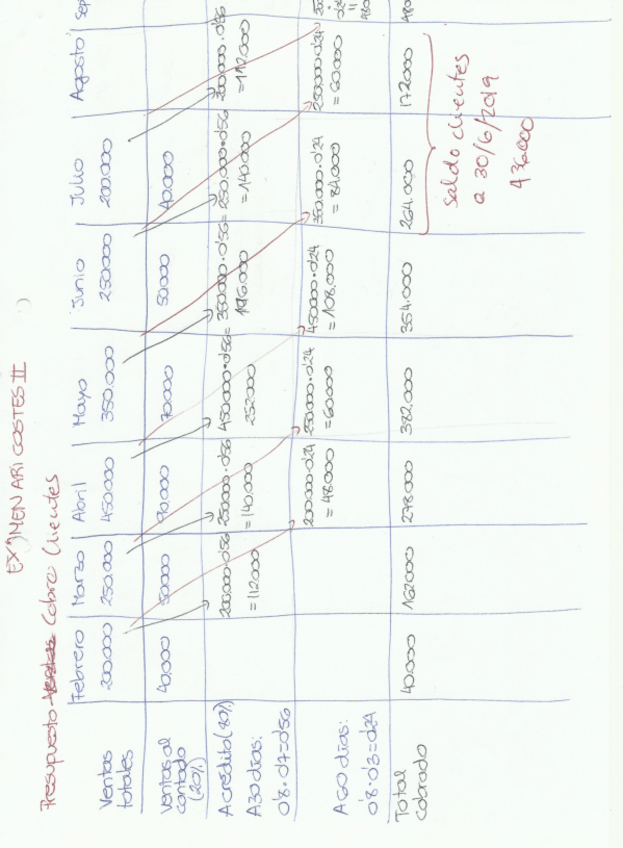 EXAMEN ARI COSTES II
Presupuesto Ventas Cobro Clientes
Febrero Marzo Abril Mayo Junio Julio Agosto Sep
Ventas totales 200.000 250.000 450.000 350.000 250.000 200.000
Ventas al contado (20%) 40.000 50.000 90.000 70.000 50.000 40.000
A crédito (80%)
A 30 días: 200.000·0'56 250.000·0'56 450.000·0'56= 350.000·0'56= 250.000·0'56 200.000·0'56
0'8·0'7=0'56 =112.000 =140.000 252.000 196.000 =140.000 =112.000
A 60 días: 200.000·0'24 250.000·0'24 450.000·0'24 350.000·0'24 250.000·0'24
0'8·0'3=0'24 =48.000 =60.000 =108.000 =84.000 =60.000
Total cobrado 40.000 162.000 278.000 382.000 354.000 264.000 172.000
Saldo clientes
a 30/6/2019
436.000